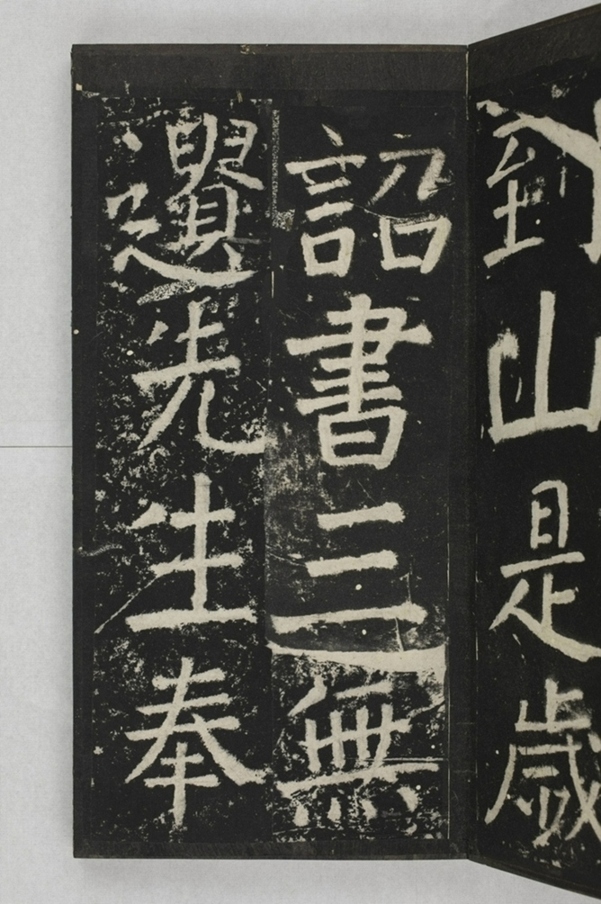 到山是歲
詔書三無
遺先生奉